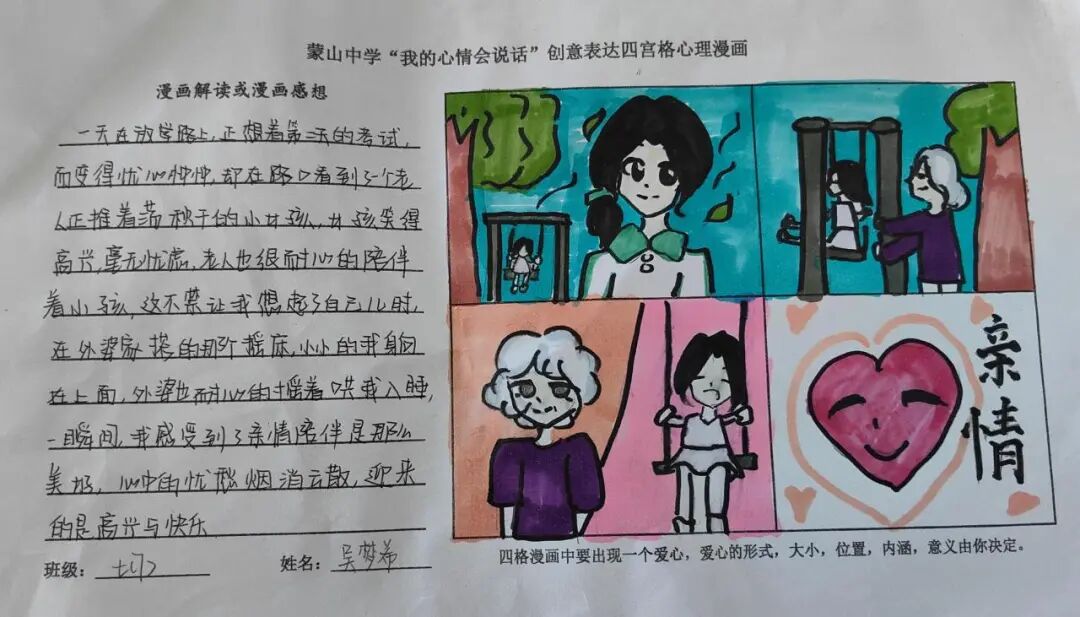 蒙山中学“我的心情会说话”创意表达四宫格心理漫画
漫画解读或漫画感想
一天在放学路上,正想着第二天的考试,
而变得忧心忡忡,却在路口看到了一个老
人正推着荡秋千的小女孩,女孩笑得
高兴,毫无忧虑,老人也很耐心的陪伴
着小孩,这不禁让我想起了自己儿时,
在外婆家摇的那个摇床,小小的我躺
在上面,外婆也耐心的摇着哄我入睡,
一瞬间,我感受到了亲情陪伴是那么
美好,心中的忧愁烟消云散,迎来
的是高兴与快乐
班级: 姓名:吴梦希
亲情
四格漫画中要出现一个爱心,爱心的形式,大小,位置,内涵,意义由你决定。